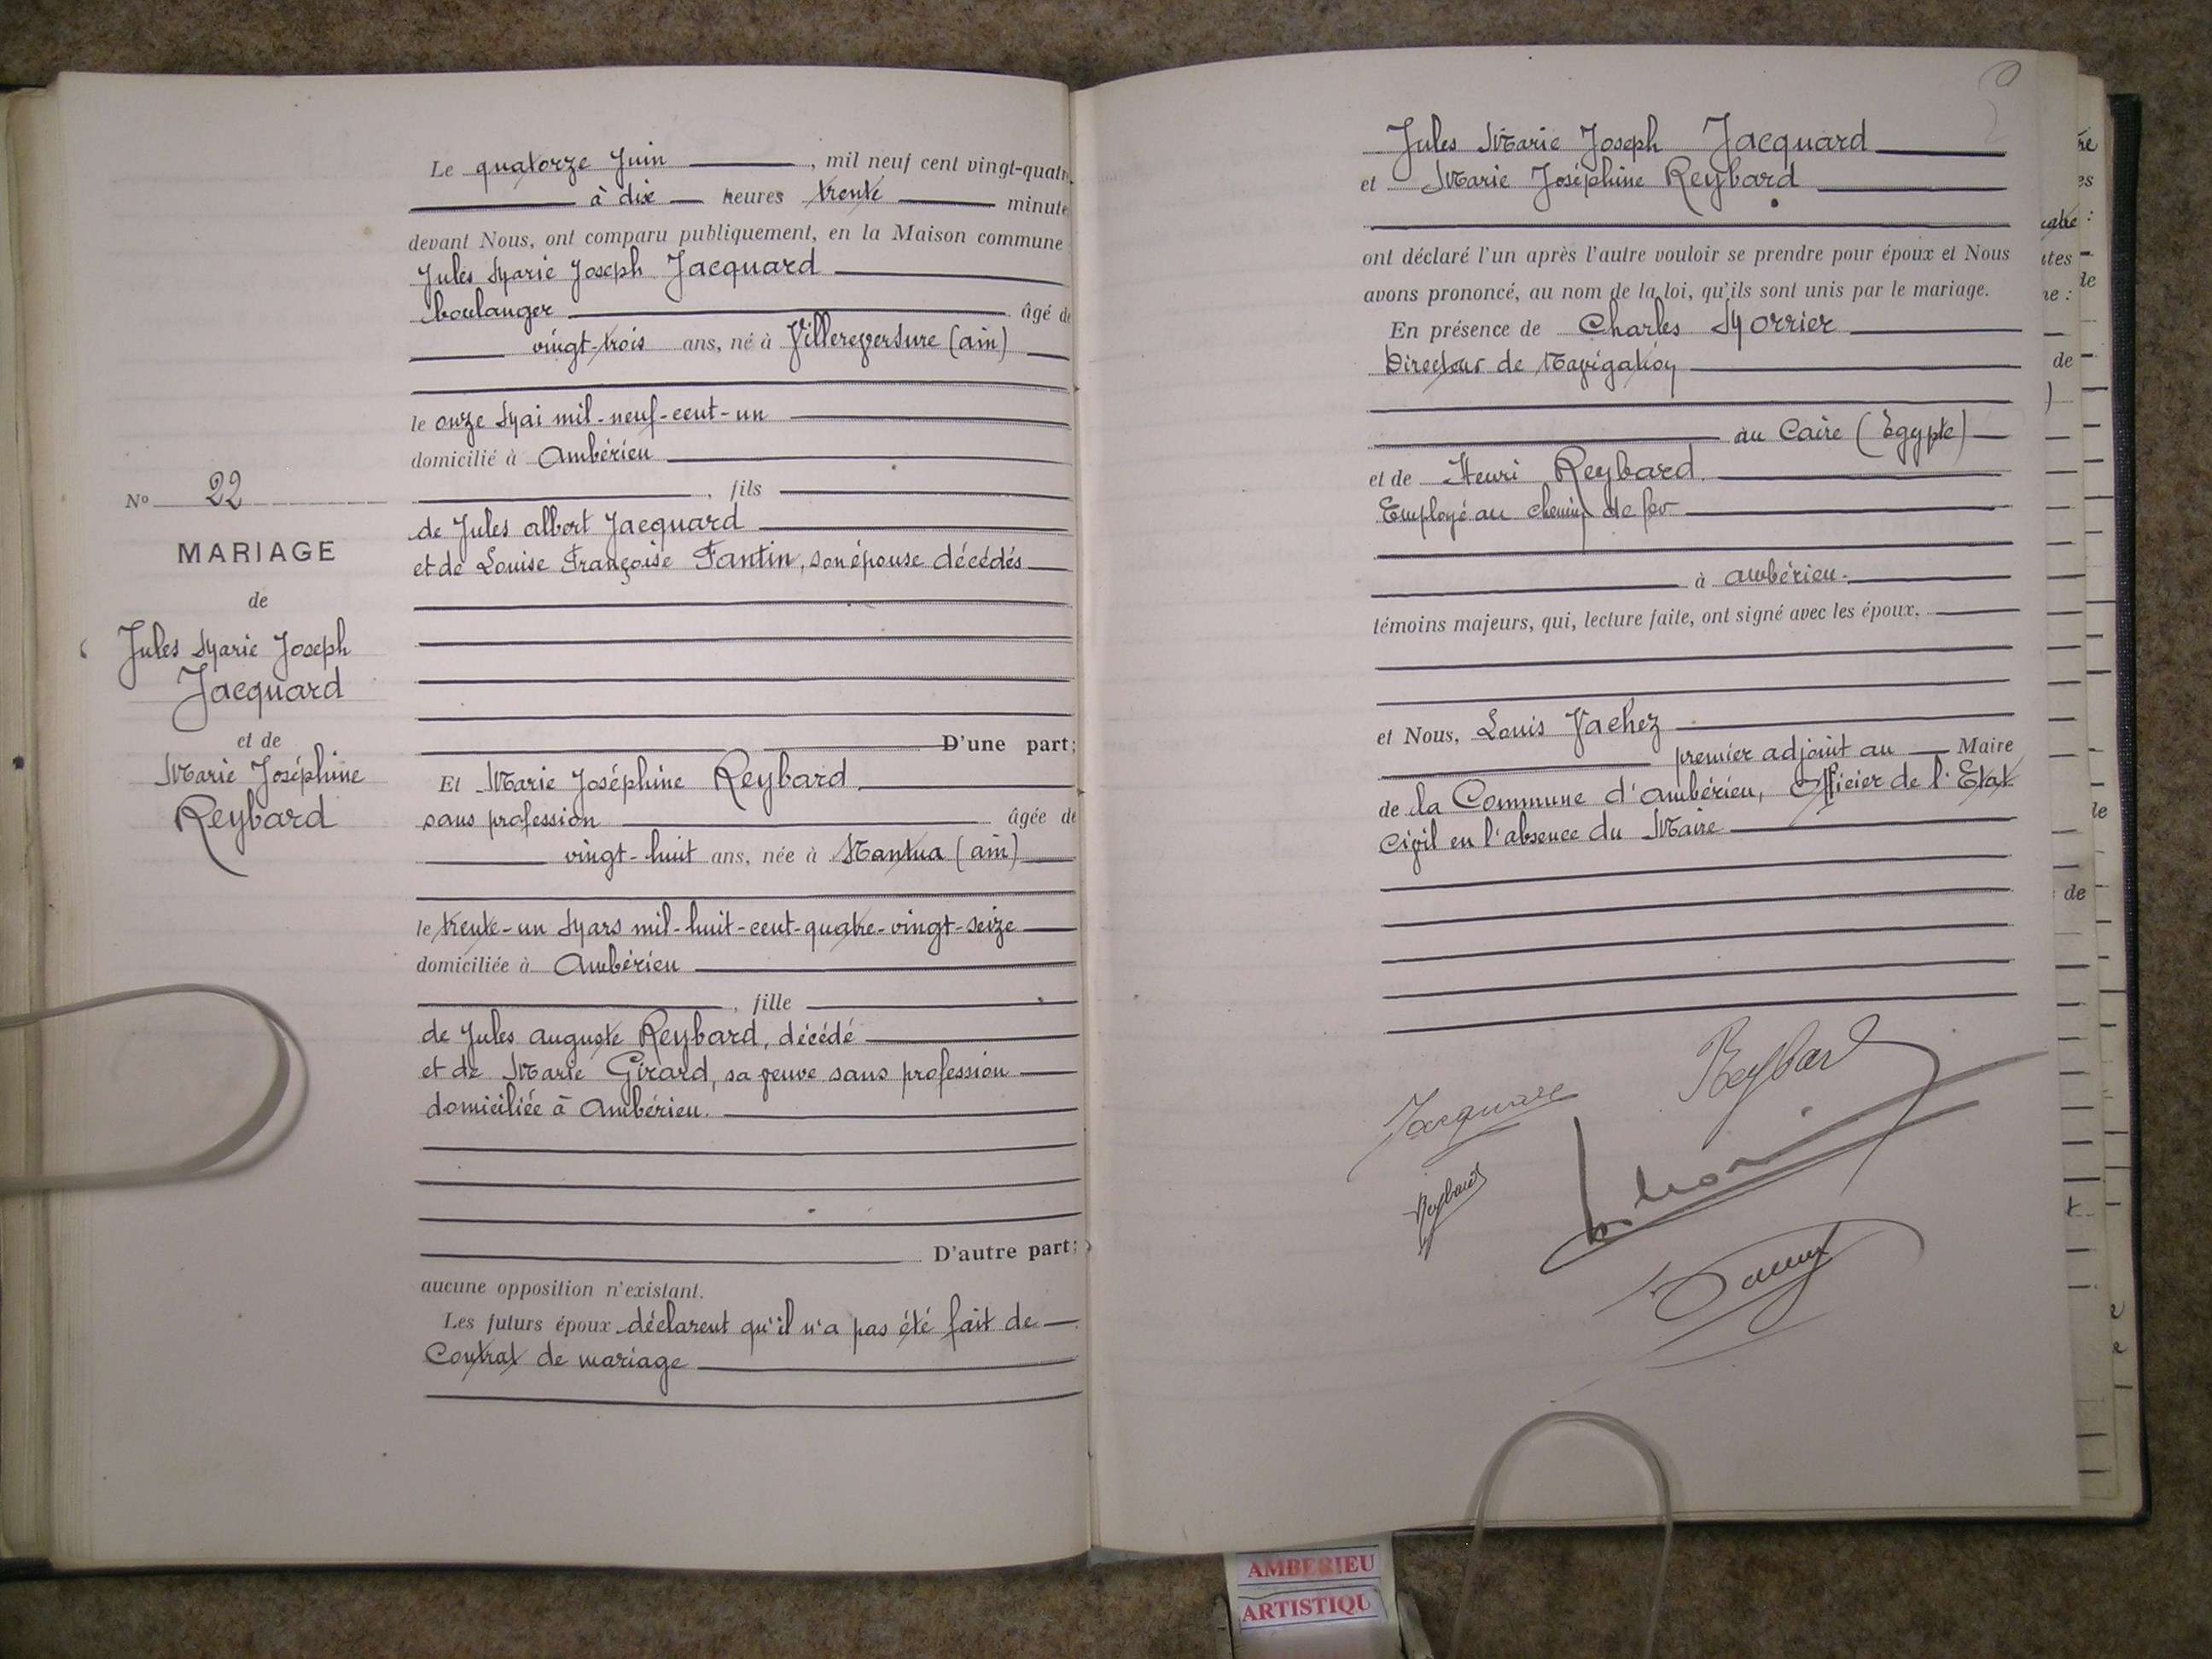 Le quatorze Juin, mil neuf cent vingt-quatr
à dix heures trente minute
devant Nous, ont comparu publiquement, en la Maison commune
Jules Marie Joseph Jacquard
boulanger âgé de
vingt-trois ans, né à Villereversure (ain)
le onze Mai mil-neuf-cent-un
domicilié à Ambérieu
, fils
de Jules albert Jacquard
et de Louise Françoise Fantin, son épouse décédés
No 22
MARIAGE
de
Jules Marie Joseph
Jacquard
et de
Marie Joséphine
Reybard
D'une part;
Et Marie Joséphine Reybard,
sans profession âgée de
vingt-huit ans, née à Nantua (ain)
le trente-un Mars mil-huit-cent-quatre-vingt-seize
domiciliée à Ambérieu
, fille
de Jules auguste Reybard, décédé
et de Marie Girard, sa veuve sans profession
domiciliée à Ambérieu.
D'autre part;
aucune opposition n'existant.
Les futurs époux déclarent qu'il n'a pas été fait de
Contrat de mariage
Jules Marie Joseph Jacquard
et Marie Joséphine Reybard
ont déclaré l'un après l'autre vouloir se prendre pour époux et Nous
avons prononcé, au nom de la loi, qu'ils sont unis par le mariage.
En présence de Charles Morrier
Directeur de Navigation
au Caire (Egypte)
et de Henri Reybard.
Employé au chemin de fer
à Ambérieu.
témoins majeurs, qui, lecture faite, ont signé avec les époux.
et Nous, Louis Vachez
premier adjoint au Maire
de la Commune d'ambérieu, Officier de l'Etat
Civil en l'absence du Maire
Jacquard
Reybard
Reybard
AMBERIEU
ARTISTIQU